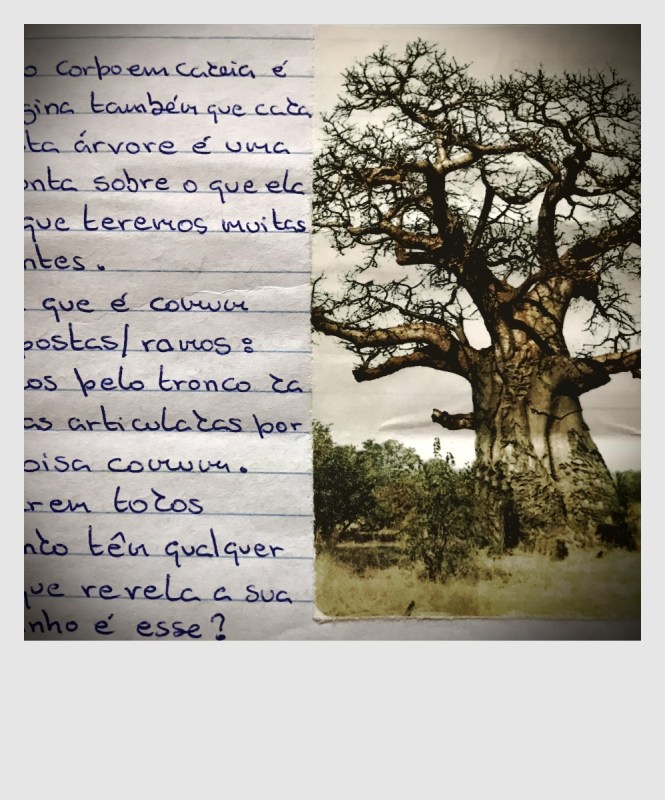 o corpo em cadeia é
gina também que cada
ta árvore é uma
onta sobre o que ela
que teremos muitas
ntes.
que é comum
postas/ramos:
os pelo tronco da
as articuladas por
oisa comum.
rem todos
ndo têm qualquer
ue revela a sua
nho é esse?